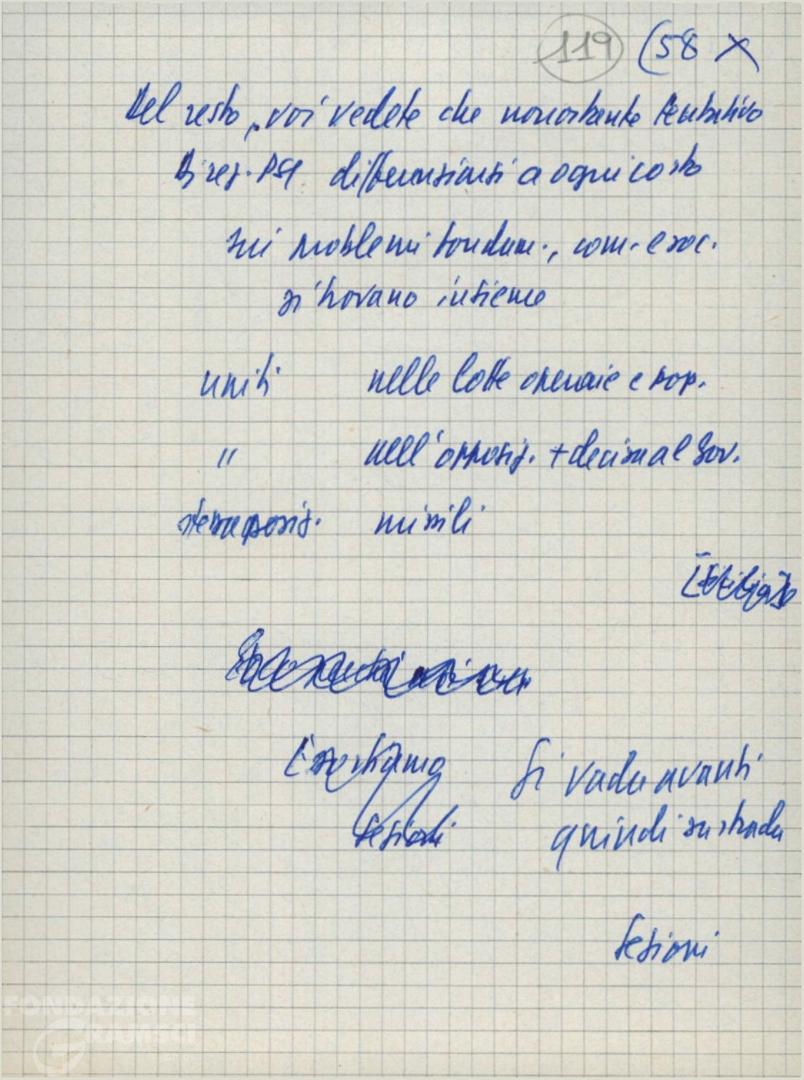 119 (58 X
Del resto, voi vedete che nonostante tentativo
Direz. PSI differenziarsi a ogni costo
sui problemi fondam., com. e soc.
si trovano insieme
uniti nelle lotte operaie e pop.
" nell'opposiz. + decisa al Gov.
stessa posiz. missili
Esortiamo
tesioni
Si vada avanti
quindi su strada
tesioni
FONDAZIONE
GRAMSCI